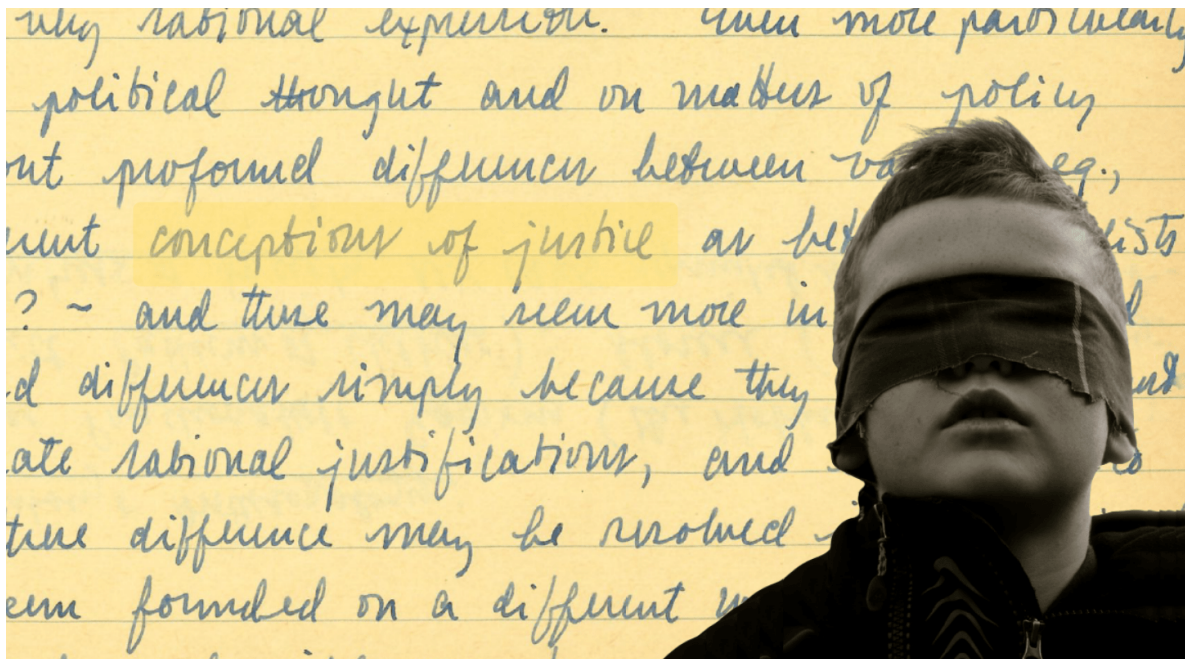 very rational expression. Even more particularly
political thought and on matters of policy
profound differences between eg.,
conceptions of justice as
? ~ and these may seem more in
differences simply because they
rational justifications, and
these difference may be resolved
founded on a different